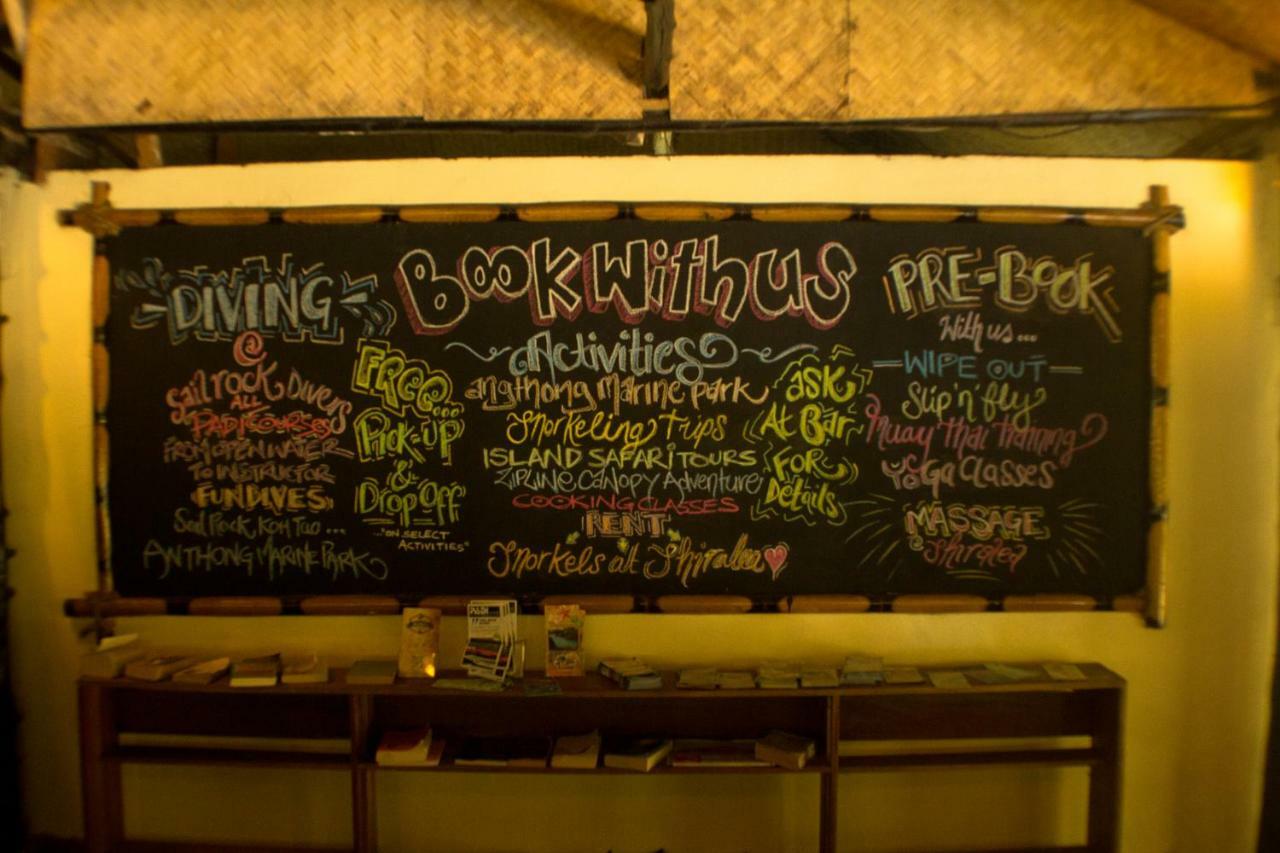 DIVING
@
Sail rock Divers
ALL
PADI COURSES
FROM OPEN WATER
TO INSTRUCTOR
FUN DIVES
Sail Rock, KOH TAO ...
ANTHONG MARINE PARK
FREE...
Pick-UP
&
Drop Off
..."ON SELECT
ACTIVITIES"
Book With us
Activities
angthong Marine park
Snorkeling Trips
ISLAND SAFARI TOURS
ZIPLINE CANOPY Adventure
COOKING CLASSES
RENT
Snorkels at Shiralea
ask
At Bar
FOR
Details
PRE-BOOK
With us...
WIPE OUT
Slip 'n' fly
Muay thai training
YOga Classes
MASSAGE
@ Shiralea